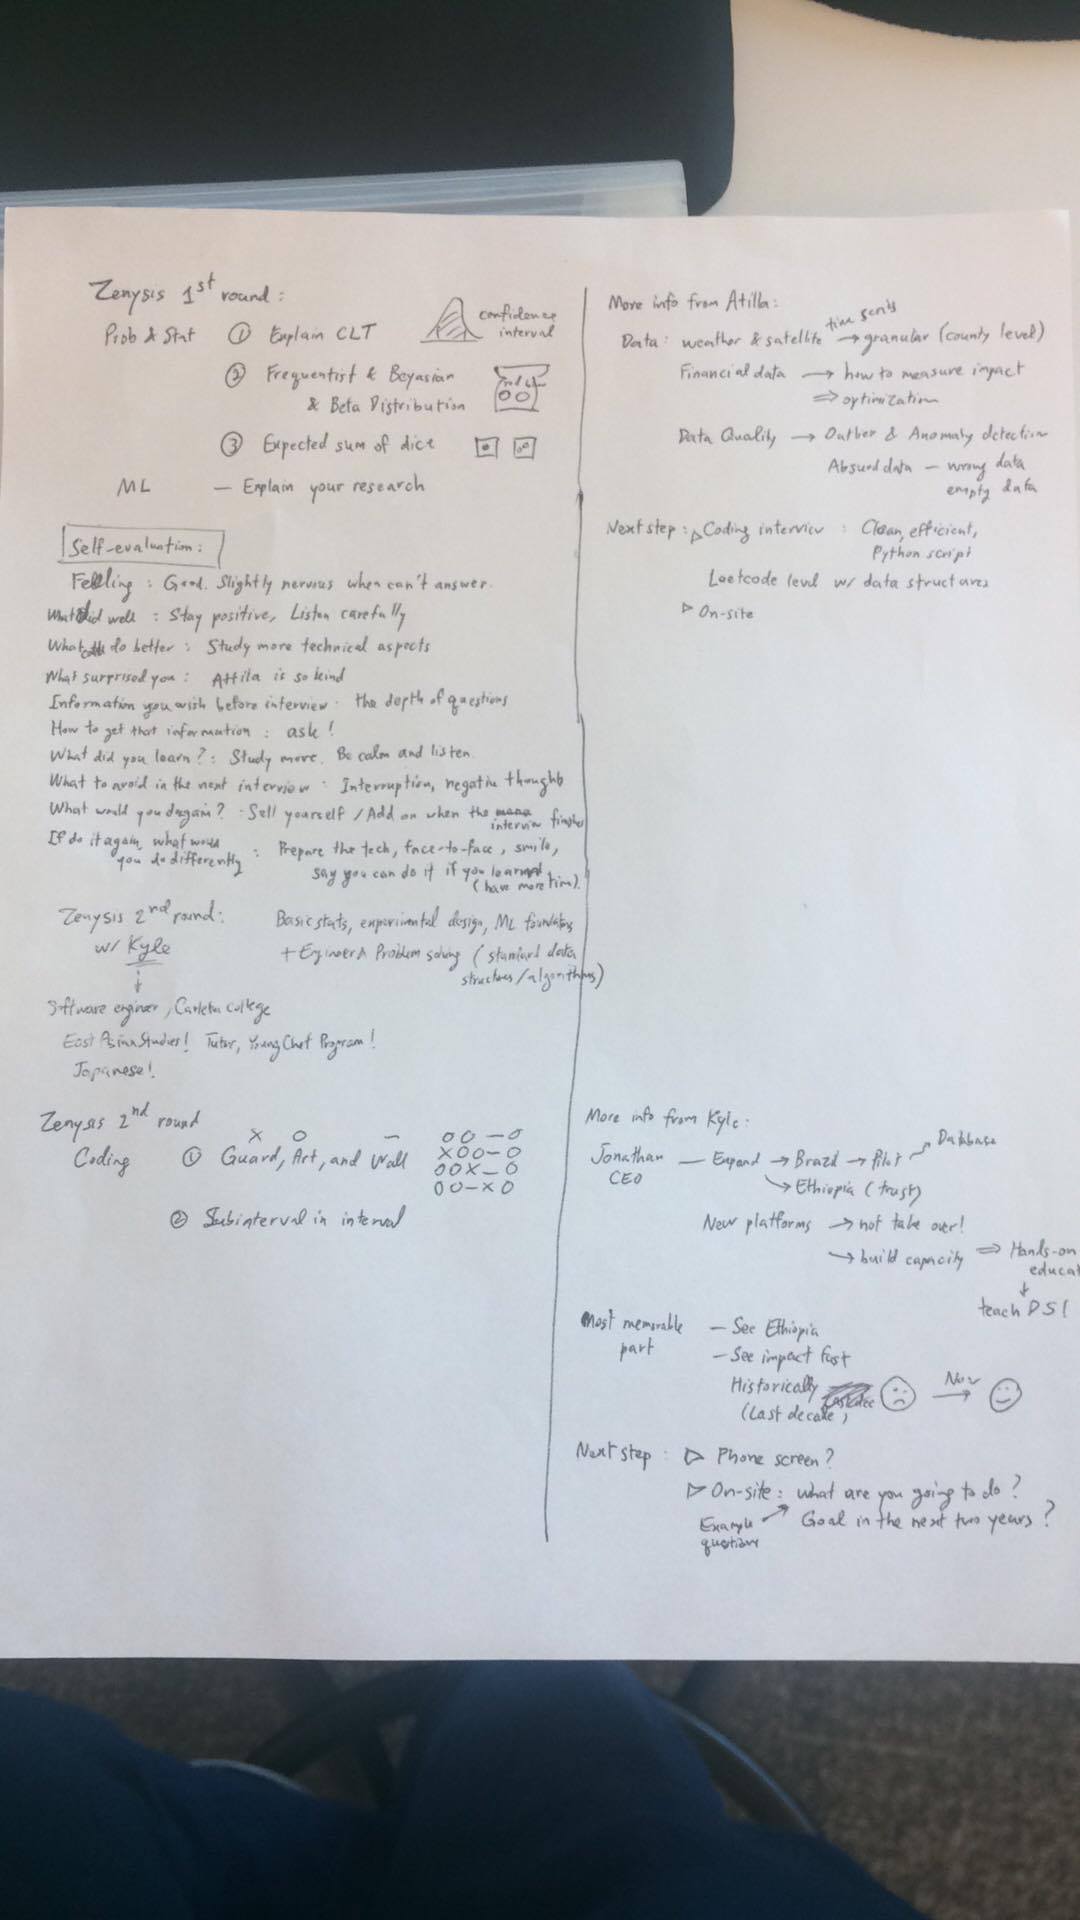 Zenysis 1st round :
Prob & Stat ① Explain CLT
confidence
interval
② Frequentist & Beyasian
& Beta Distribution
③ Expected sum of dice
ML — Explain your research
Self-evaluation :
Feeling : Good. Slightly nervous when can't answer.
What did well : Stay positive, Listen carefully
What do better : Study more technical aspects
What surprised you : Attila is so kind
Information you wish before interview : the depth of questions
How to get that information : ask !
What did you learn ? : Study more. Be calm and listen.
What to avoid in the next interview : Interruption, negative thoughts
What would you do again ? : Sell yourself / Add on when the
interview finishes
If do it again, what would
you do differently : Prepare the tech, face-to-face, smile,
say you can do it if you learned
(have more time).
Zenysis 2nd round : Basic stats, experimental design, ML foundations
w/ Kyle + Engineer & Problem solving ( standard data
structures / algorithms )
Software engineer, Carleton college
East Asian Studies ! Tutor, Young Chef Program !
Japanese !
Zenysis 2nd round
X O —
Coding ① Guard, Art, and Wall
O O — O
X O O — O
O O X — O
O O — X O
② Subinterval in interval
More info from Atilla :
time series
Data : weather & satellite → granular (county level)
Financial data → how to measure impact
⇒ optimization
Data Quality → Outlier & Anomaly detection
Absurd data — wrong data
empty data
Next step : ▷ Coding interview : Clean, efficient,
Python script
Leetcode level w/ data structures
▷ On-site
More info from Kyle :
Jonathan — Expand → Brazil → Pilot → Database
CEO → Ethiopia (trust)
New platforms → not take over !
→ build capacity ⇒ Hands-on
educat
↓
teach DSI
Most memorable — See Ethiopia
part — See impact fast
Historically → Now
(Last decade)
Next step : ▷ Phone screen ?
▷ On-site : what are you going to do ?
Example → Goal in the next two years ?
questions